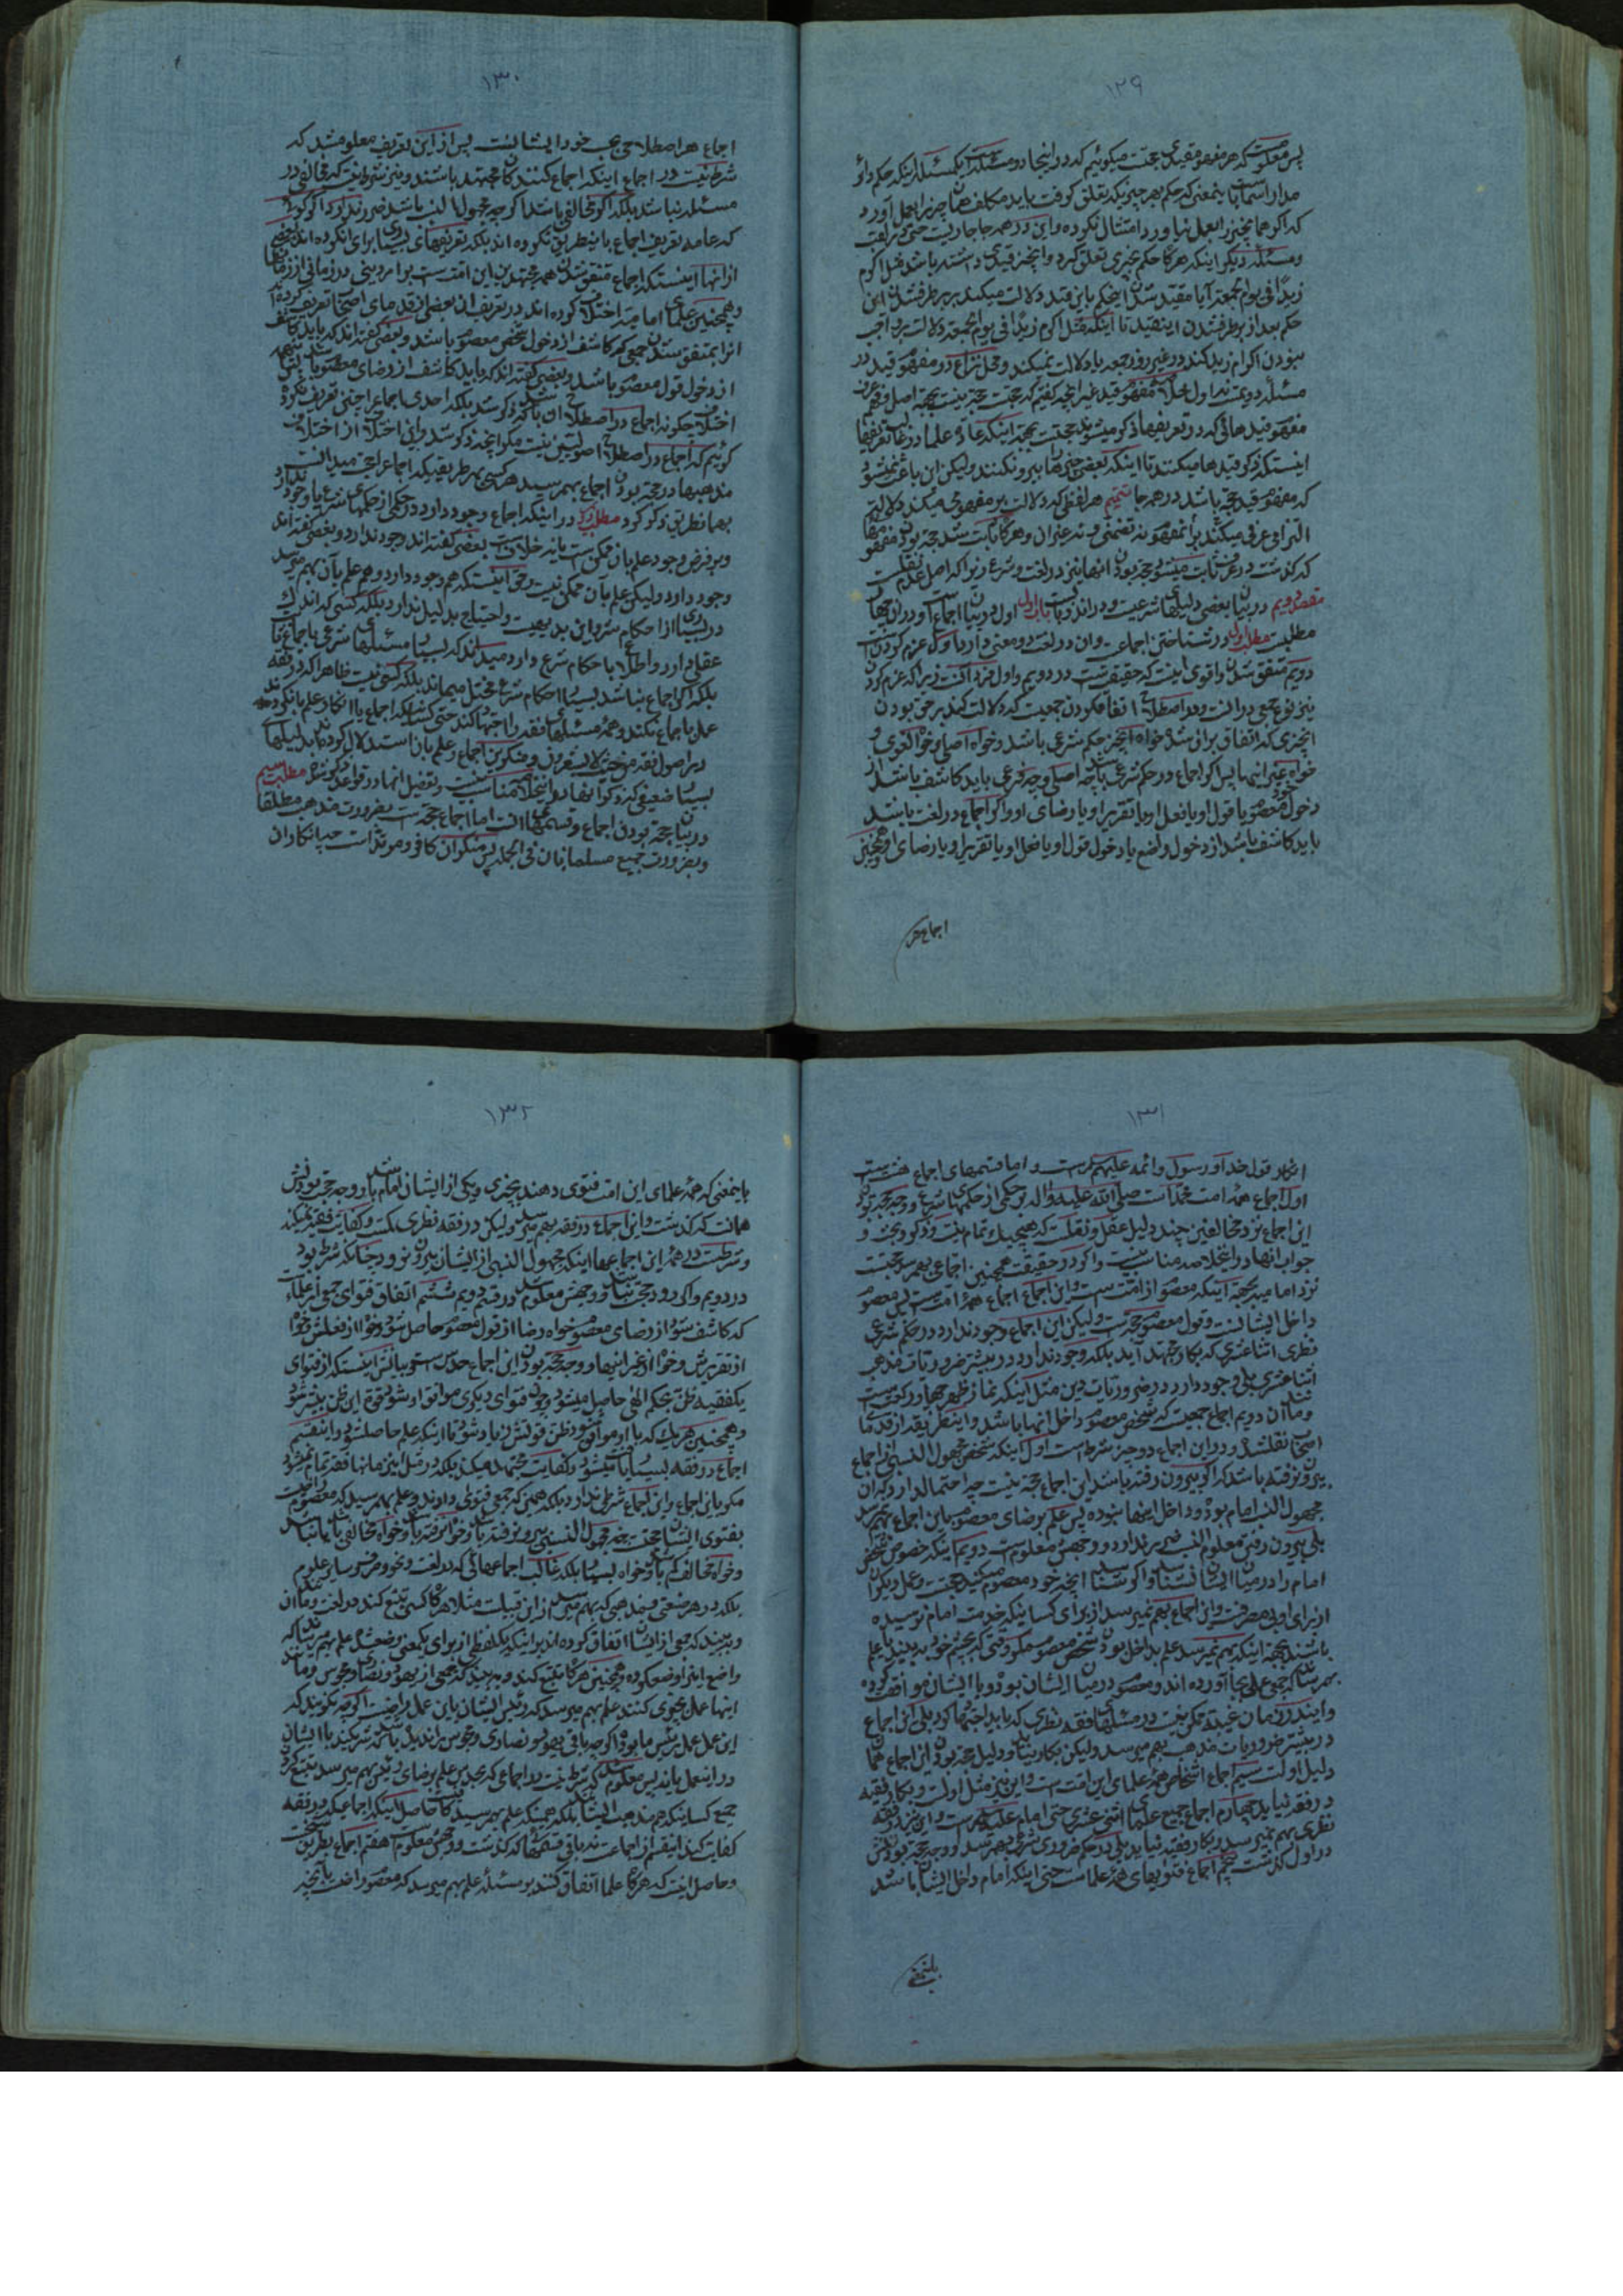 ۱۲۹
پس معلوم شد که هر مفهوم قیدی حجت میکوئیم که در اینجا دو مسئله یکمسئله اینکه حکم دائر
مدار است بآن بمعنی که حکم بهر چیزیکه تعلق کرفت باید مکلف همان چیز را بعمل آورد
که اکر همانچیز را بعمل نیاورد امتثال نکرده و این در همه جا جاریست حتی در لقب
و مسئله دیکر اینکه هرکاه حکم بچیزی تعلق کرد و آنچیز قیدی داشته باشد مثل اکرم
زیدا فی یوم الجمعه آیا مقید شدن اینحکم باین قید دلالت میکند بر برطرفشدن این
حکم بعد از برطرفشدن اینقید تا اینکه مثل اکرم زیدا فی یوم الجمعه دلالت بر واجب
نبودن اکرام زید کند در غیر روز جمعه یا دلالت نمیکند و محل نزاع در مفهوم قید در
مسئله دویمست نه اول
مفهوم قیدهائی که در تعریفها ذکر میشوند حجتست بجهة اینکه عادة علما در غالب تعریفها
اینستکه ذکر قیدها میکنند تا اینکه بعضی چیزها بیرونکنند ولیکن این باعث نمیشود
که مفهوم قید حجة باشد در همه جا تتمیم هر لفظی که دلالت بر مفهومی میکند دلالت
التزامی عرفی میکند بر آنمفهوم نه تضمنی و نه غیر آن و هرکاه ثابت شد حجة بودن مفهومها
که کذشت در عرف ثابت میشود حجة بودن آنها نیز در لغت و شرع زیرا که اصل عدم نقلست
مقصد دویم در بیان بعضی دلیلهای شرعیست و در آن دو بابست باب اول در بیان اجماع و در آن چهار
مطلبست مطلب اول در شناختن اجماعست و آن در لغت دو معنی دارد اول عزم کردنست
دویم متفق شدن و اقوی اینست که حقیقتست در دویم و اول فرد آنست زیرا که عزم کردن
نیز نوع جمعی در آنست و در اصطلاح اتفاقکردن جمعیست که دلالت کند بر حق بودن
آنچیزی که اتفاق بر آن شده خواه آنچیز حکم شرعی باشد و خواه اصلی و خواه لغوی و
خواه غیر اینها پس اکر اجماع در حکم شرعی باشد چه اصلی و چه فرعی باید کاشف باشد از
دخول خود معصوم یا قول او یا فعل او یا تقریر او یا رضای او و اکر اجماع در لغت باشد
باید کاشف باشد از دخول واضع یا دخول قول او یا فعل او یا تقریر او یا رضای او و همچنین
اجماع هر
۱۳۰
اجماع هر اصطلاحی بحسب خود ایشانست پس از این تعریف معلوم شد که
شرط نیست در اجماع اینکه اجماع کنندکان مجتهد باشند و نیز شرط نیست که مخالفی در
مسئله نباشد بلکه اکر مخالفی باشد اکرچه مجهول النسب باشد ضرر ندارد
که عامه تعریف اجماع باینطریق نکرده اند بلکه تعریفهای بسیاری برای آن کرده اند
از آنها اینستکه اجماع متفق شدن همه مجتهدین این امتست بر امر دینی در زمانی از زمانها
و همچنین علمای امامیه اختلاف کرده اند در تعریف آن بعضی از قدمای اصحاب تعریف کرده اند
آنرا بمتفق شدن جمعی که کاشف از دخول شخص معصوم باشد و بعضی کفته اند که باید کاشف
از دخول قول معصوم باشد و بعضی کفته اند که باید کاشف از رضای معصوم باشد
اختلاف چکونه اجماع در اصطلاح آن باشد که ذکر شد بلکه احدی اجماع را چنین تعریف نکرده
کوئیم که اجماع در اصطلاح اصولیین نیست مکر آنچه ذکر شد و این اختلاف از اختلاف
مذهبها در حجة بودن اجماع بهم رسیده هرکسی بهر طریقیکه اجماع را حق میدانست
بهمانطریق ذکر کرد مطلب دویم در اینکه اجماع وجود دارد در حکمی از حکمهای شرع یا وجود ندارد
و بر فرض وجود علم بآن ممکن است یا نه خلافست بعضی کفته اند وجود ندارد و بعضی کفته اند
وجود دارد ولیکن علم بآن ممکن نیست و حق اینستکه هم وجود دارد و هم علم بآن بهم میرسد
در بسیاری از احکام شرع و این بدیهیست و احتیاج بدلیل ندارد بلکه کسی که اندک
عقلی دارد و اطلاع باحکام شرع دارد میداند که بسیار مسئلهای شرعی باجماع ثابت
بلکه اکر اجماع نباشد بسیار احکام شرع مختل میماند بلکه کسی نیست ظاهرا که در فقه
عمل باجماع نکند و همه مسئلهای فقه را اجتهاد کند حتی کسانیکه اجماع یا انکار علم بآن کرده اند
در اصول فقه
بسیار ضعیفی که ذکر آنها در اینخلاصه مناسب نیست و تفصیل آنها در قواعد ذکر شده مطلب سیم
در بیان حجة بودن اجماع و قسمهای آنست اما اجماع حجتست بضرورت مذهب مطلقا
و بضرورت جمیع مسلمانان فی الجمله پس منکر آن کافر و مرتد است چه انکار آن
۱۳۱
انکار قول خدا و رسول و ائمه علیهم السلامست و اما قسمهای اجماع هفتست
اول اجماع همه امت محمد است صلی الله علیه و آله بر حکمی از حکمهای شرع و وجه حجة بودن
این اجماع نزد مخالفین چند دلیل عقلی و نقلیست که هیچیک تمام نیست و ذکر و بحث و
جواب آنها در اینخلاصه مناسب نیست و اکر در حقیقت همچنین اجماعی بهم رسد حجتست
نزد امامیه بجهة اینکه معصوم از امتست و این اجماع اجماع همه امتست پس معصوم
داخل ایشانست و قول معصوم حجتست ولیکن این اجماع وجود ندارد در حکم شرعی
نظری اثناعشری که بکار مجتهد آید بلکه وجود ندارد در بیشتر ضروریات مذهب
اثناعشری بلی وجود دارد در ضروریات دین مثل اینکه نماز ظهر چهار رکعتست
و مانند آن دویم اجماع جمعیست که شخص معصوم داخل آنها باشد و اینطریقه از قدمای
اصحاب نقل شد و در این اجماع دو چیز شرط است اول اینکه شخص مجهول النسب از اجماع
بیرون نرفته باشد که اکر بیرون رفته باشد این اجماع حجة نیست چه احتمال دارد که آن
مجهول النسب امام بوده و داخل اینها نبوده پس علم برضای معصوم باین اجماع بهم نمیرسد
بلی بیرون رفتن معلوم النسب ضرر ندارد و وجهش معلومست دویم اینکه خصوص شخص
امام را در میان ایشان نشناسد و اکر شناسد آنچه خود معصوم میکند حجتست و عمل دیکران
از برای او بی مصرفست و این اجماع بهم نمیرسد از برای کسانیکه خدمت امام نرسیده
باشند بجهة اینکه بهم نمیرسد علم بداخل بودن شخص معصوم مکر وقتی که بچشم خود ببیند یا علم
بهم رساند که جمعی عملی بجا آورده اند و معصوم در میان ایشان بوده و با ایشان موافقت کرده
و این در زمان غیبت ممکن نیست در مسئلهای فقه نظری که باید اجتهاد کرد بلی این اجماع
در بیشتر ضروریات مذهب بهم میرسد ولیکن بکار نیاید و دلیل حجة بودن این اجماع همان
دلیل اولست سیم اجماع اشخاص همه علمای این امتست و این نیز مثل اولست و بکار فقیه
در فقه نیاید چهارم اجماع جمیع علمای اثنی عشری حتی امام علیه السلامست و این نیز در فقه
نظری بهم نمیرسد و بکار فقیه نیاید بلی در حکم ضروری شرعی بهم رسد و وجه حجة بودنش
در اول کذشت پنجم اجماع فتویهای همه علماست حتی اینکه امام داخل ایشان باشد
باینمعنی
۱۳۲
باینمعنی که همه علمای این امت فتوی دهند بچیزی و یکی از ایشان امام باشد و وجه حجت بودنش
همانست که کذشت و این اجماع در فقه بهم میرسد ولیکن در فقه نظری کمست و کفایت فقیه نمیکند
و شرطست در همه این اجماعها اینکه مجهول النسبی از ایشان بیرون نرود چنانکه شرط بود
در دویم و اکر رود حجت نباشد و وجهش معلوم شد در قسم دویم ششم اتفاق فتوای جمعی از علماست
که کاشف شود از رضای معصوم خواه رضا از قول معصوم حاصل شود و خواه از فعلش و خواه
از تقریرش و خواه از غیر اینها و وجه حجة بودن این اجماع حدس است و بیانش اینستکه از فتوای
یکفقیه ظن بحکم الهی حاصل میشود و چون فتوای دیکری موافق او شود قوة این ظن بیشتر شود
و همچنین هر یک که با او موافق شود ظن قوتش زیاد شود تا اینکه علم حاصل شود و اینقسم
اجماع در فقه بسیار یافت میشود و کفایت مجتهد میکند بلکه در مثل این زمانها فقه تمام نمیشود
مکر باین اجماع و این اجماع شرطی ندارد بلکه همین که جمعی فتوی دادند و علم بهم رسید که معصوم راضیست
بفتوی ایشان حجتست چه مجهول النسبی بیرون رفته باشد و خواه نرفته باشد و خواه مخالفی باشد یا نباشد
و خواه مخالف کم باشد و خواه بسیار بلکه غالب اجماعهائی که در لغت و نحو و صرف و سایر علوم
بلکه در هر صنعتی و مذهبی که بهم میرسد از این قبیلست مثلا هرکاه کسی تتبع کند در لغت و مانند آن
و ببیند که جمعی از ایشان اتفاق کرده اند بر اینکه یکلفظی از برای یکمعنی وضع شده علم بهم میرساند که
واضع اینرا وضع کرده و همچنین هرکاه تتبع کند و ببیند که جمعی از یهود و نصاری و مجوس و مانند
اینها عمل بچیزی کنند علم بهم میرسد که رئیس ایشان باین عمل راضیست اکرچه نکویند که
این عمل عمل رئیس ما بود و اکرچه باقی یهود و نصاری و مجوس را ندیده باشد که شرکند با ایشان
در اینعمل یا نه پس معلوم شد که شرط نیست در اجماعی که بحدس علم برضای رئیس بهم میرسد تتبع کردن
جمیع کسانیکه هم مذهب ایشان باشند بلکه همینکه علم بهم رسید کافیست حاصل اینکه اجماعیکه در فقه
کفایت کند اینقسم از اجماعست نه باقی قسمهائی که کذشت و وجهش معلومست هفتم اجماع بطریق
و حاصل اینست که هرکاه علما اتفاق کنند بر مسئله علم بهم میرسد که معصوم راضیست بآنچه